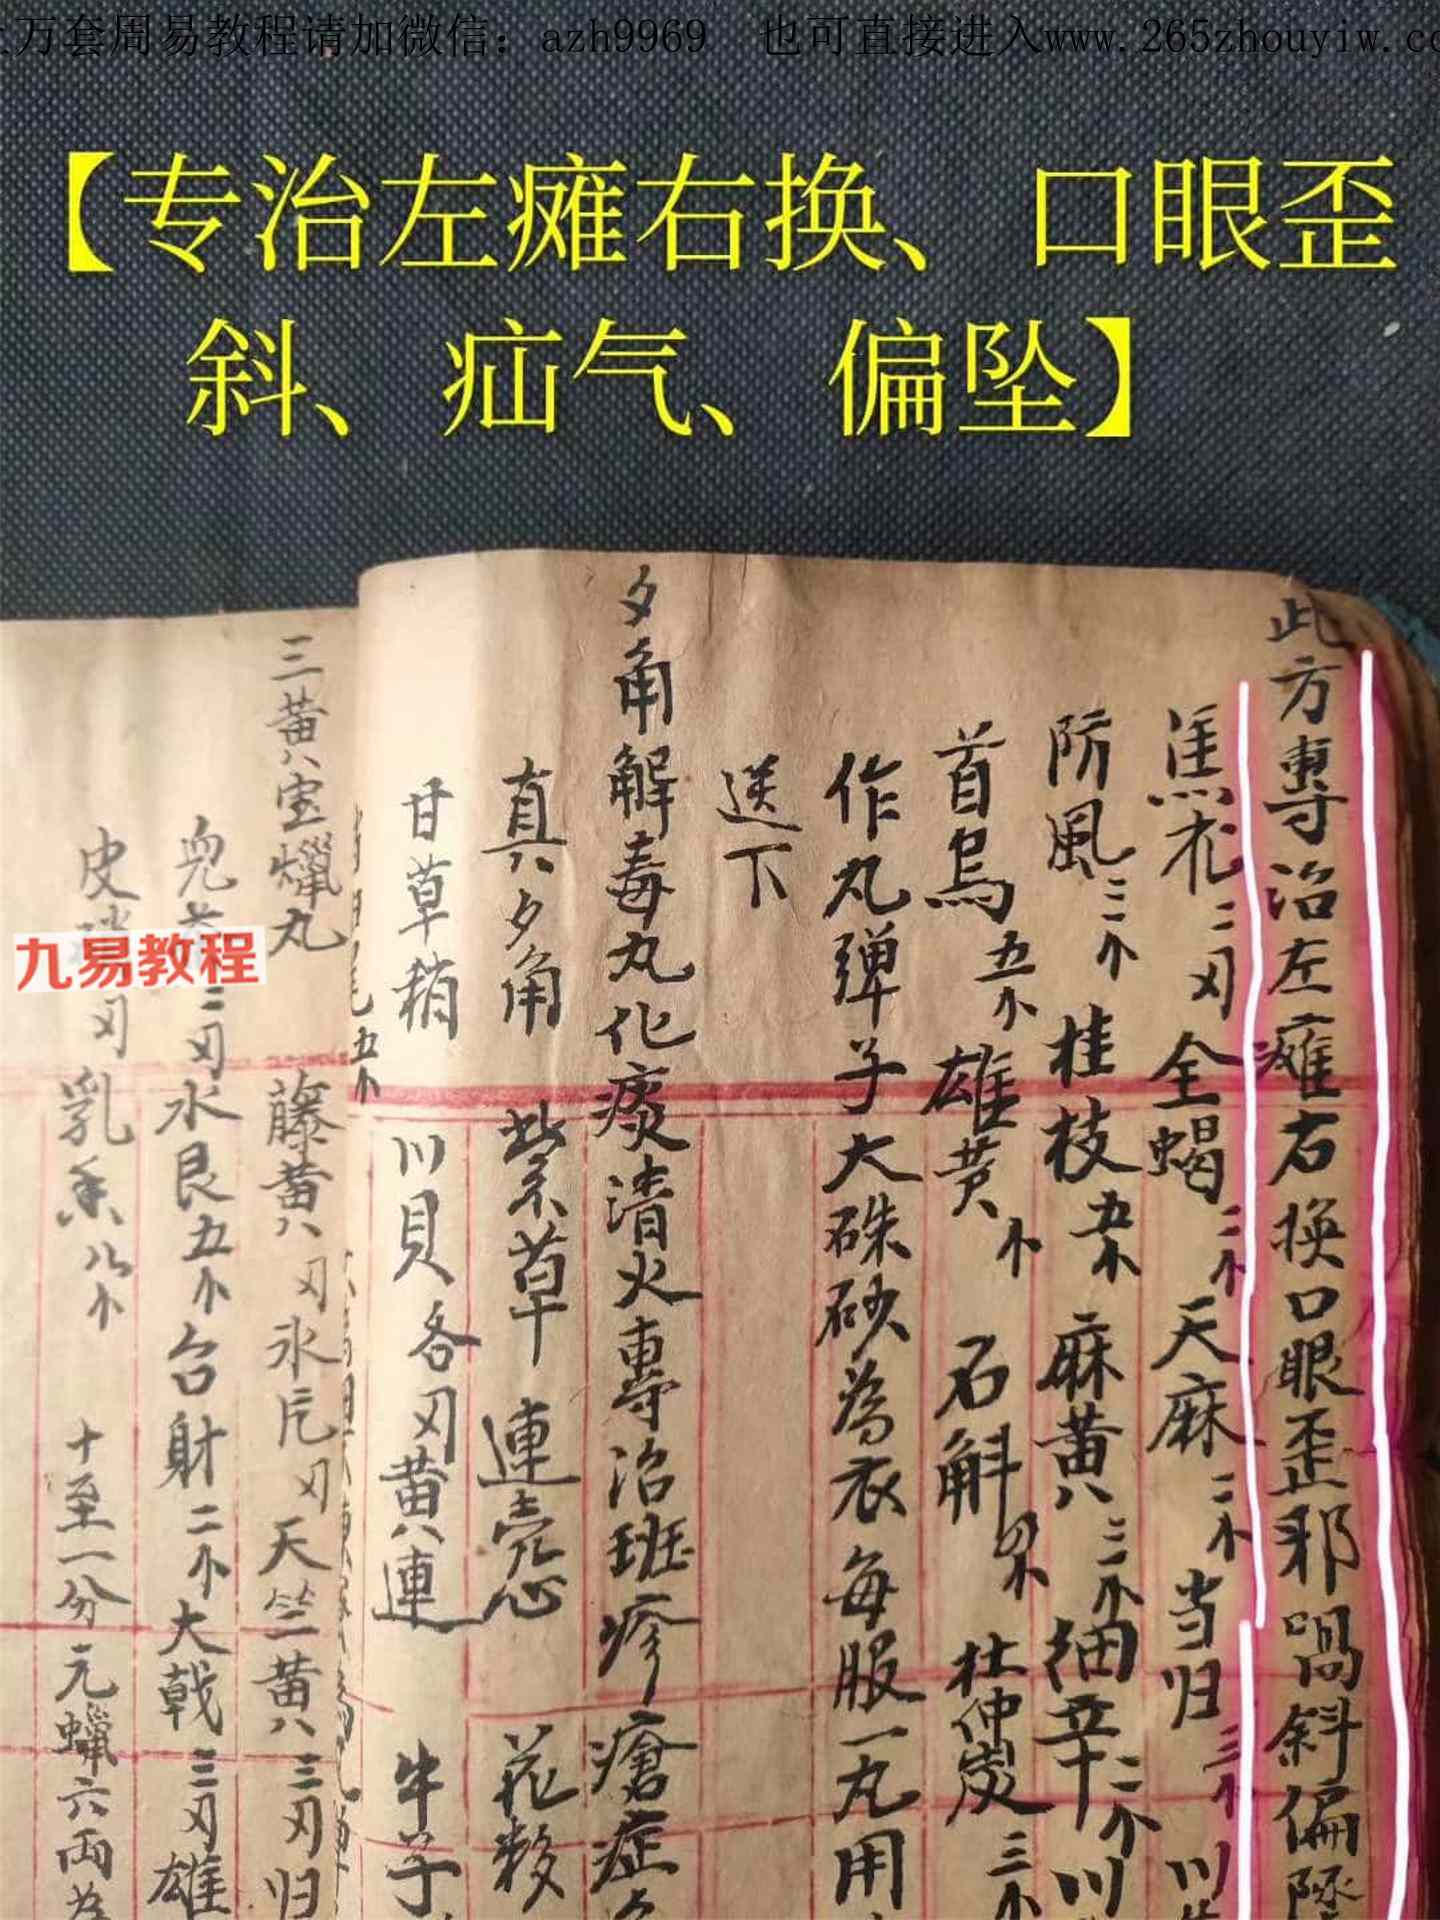 万套周易教程请加微信：azh9969 也可直接进入www.265zhouyiw.co
【专治左瘫右换、口眼歪
斜、疝气、偏坠】
此方專治左瘫右换口眼歪邪喎斜偏
二刄全蝎二个天麻二个当归三个川
防風三个桂枝五个麻黄三个细辛二个川
首烏五个雄黄个石斛 杜仲炭三个
作丸弹子大硃砂為衣每服一丸用
送下
夕角解毒丸化痰清火專治班疹瘡症
真夕角 紫草 連壳心 花粉
甘草稍 川貝各刄黄連 牛子
五个
三黄宝蠟丸 藤黄刄 天竺黄三刄归
二刄水艮五个台射二个大戟三刄雄
皮 刄乳香八个 十至一分元蠟六両為
九易教程